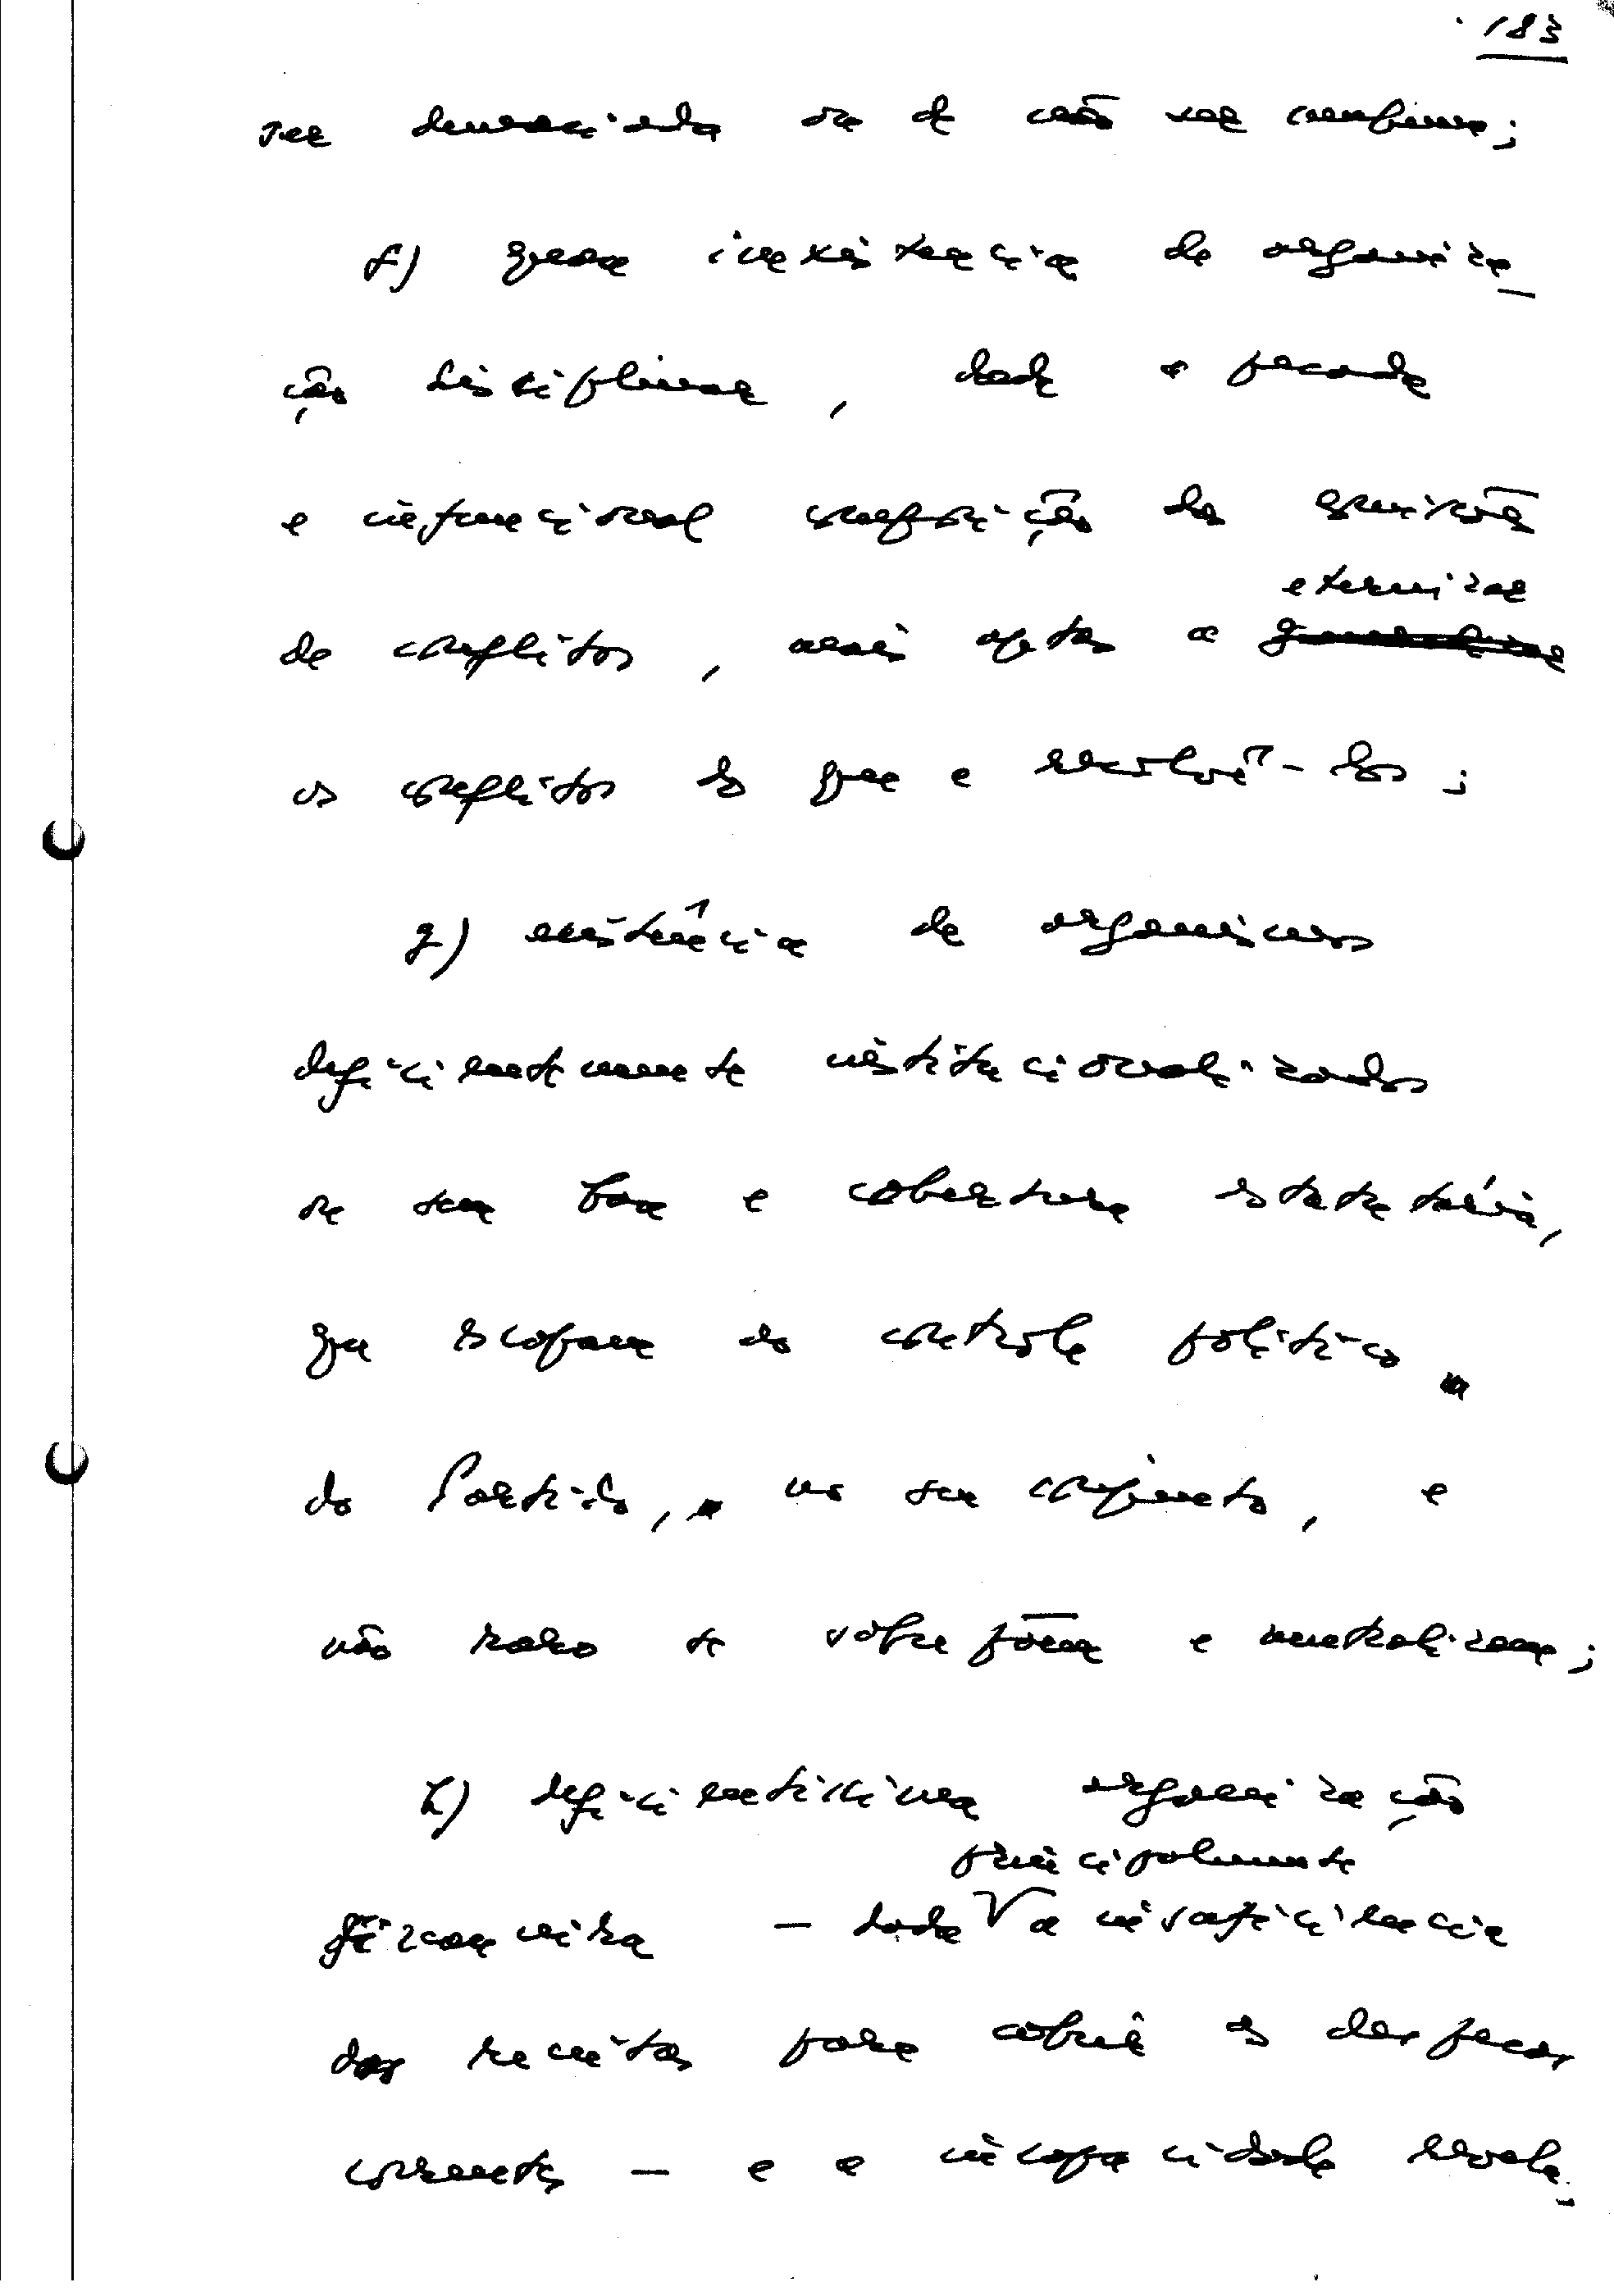 183
ser denunciada ou de não ser confirma;
f) quase inexistência de organiza_
ção disciplinar, dada a pesada
e infuncional composição da comissão
de conflitos, mais apta a eternizar
os conflitos do que a resolvê-los;
g) existência de organismos
deficientemente institucionalizados
ou sem base e cobertura estatutária,
que escapam ao controle político
do Partido, no seu conjunto, e
não raro se sobrepõem e neutralizam;
h) deficientíssima organização
principalmente
financeira – dada a insuficiência
das receitas para cobrir as despesas
correntes – e a incapacidade revela_